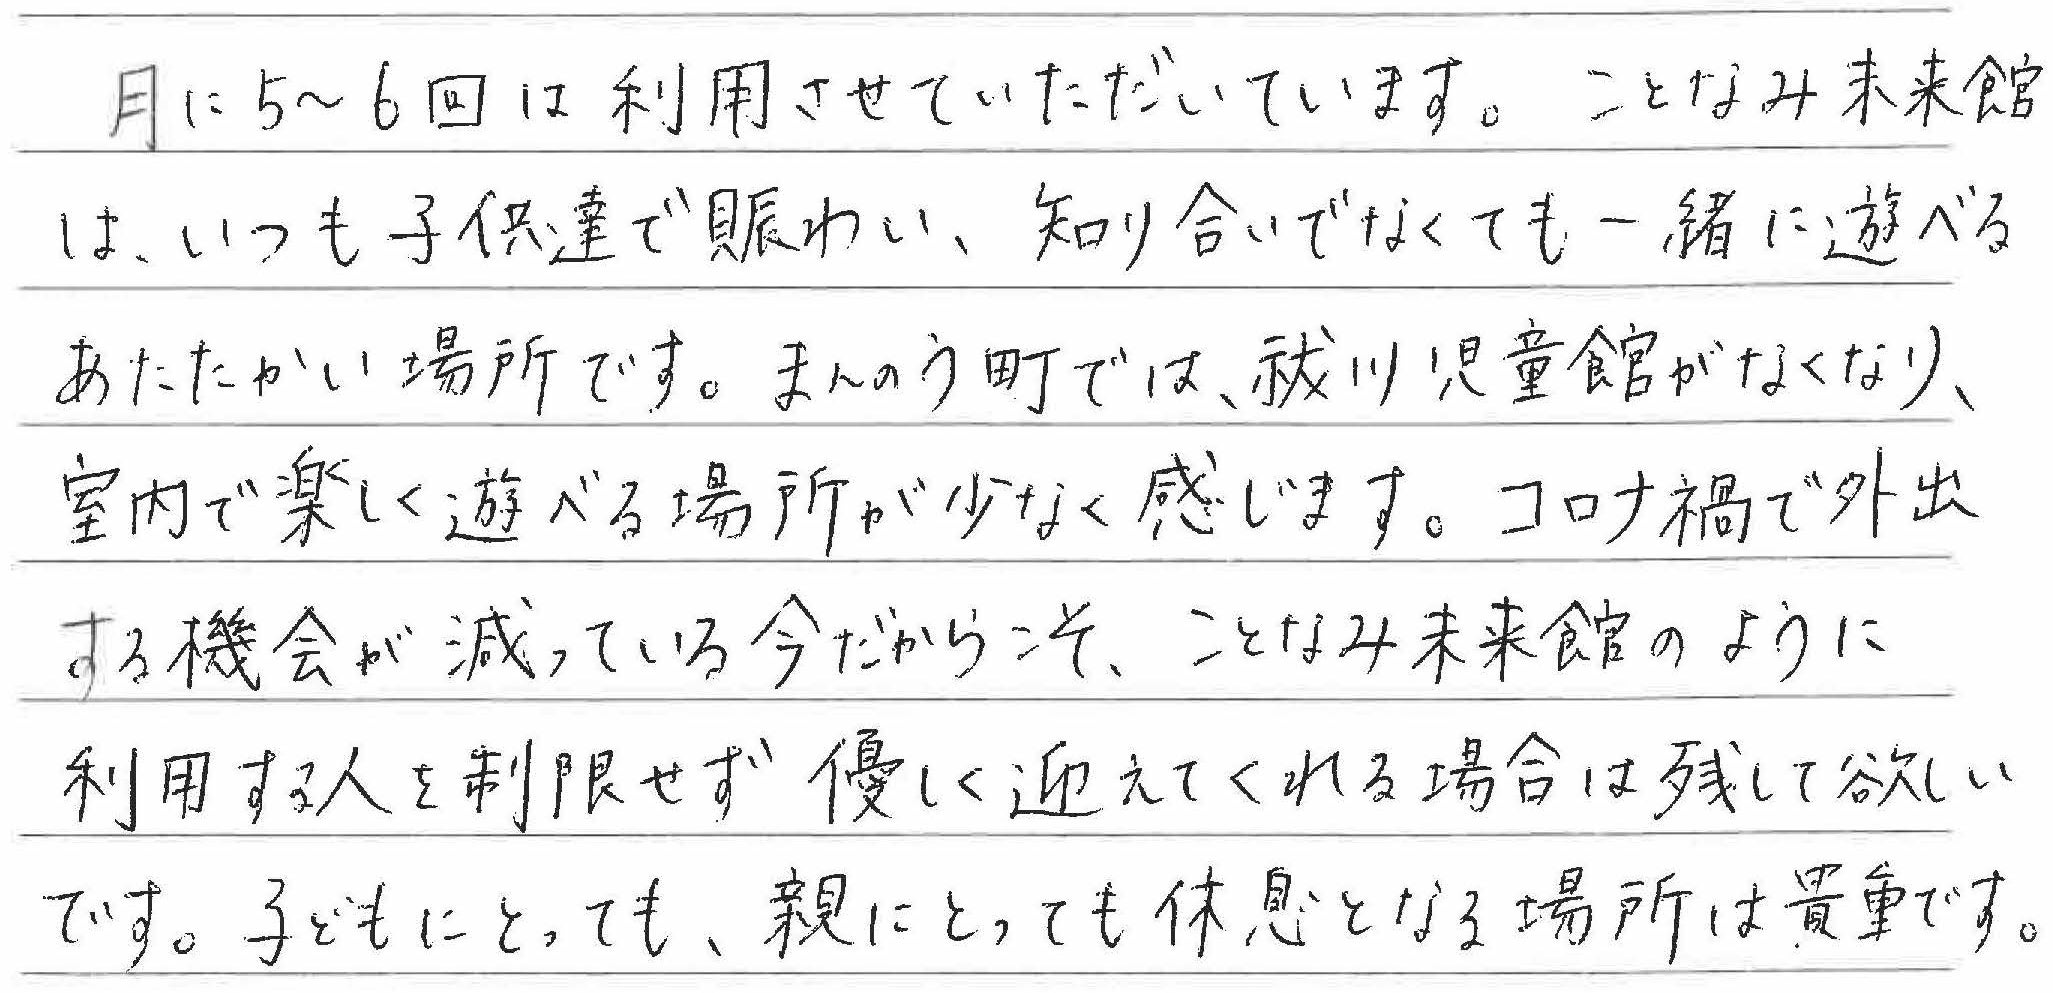 月に5～6回は利用させていただいています。ことなみ未来館
は、いつも子供達で賑わい、知り合いでなくても一緒に遊べる
あたたかい場所です。まんのう町では、祓川児童館がなくなり、
室内で楽しく遊べる場所が少なく感じます。コロナ禍で外出
する機会が減っている今だからこそ、ことなみ未来館のように
利用する人を制限せず優しく迎えてくれる場合は残して欲しい
です。子どもにとっても、親にとっても休息となる場所は貴重です。